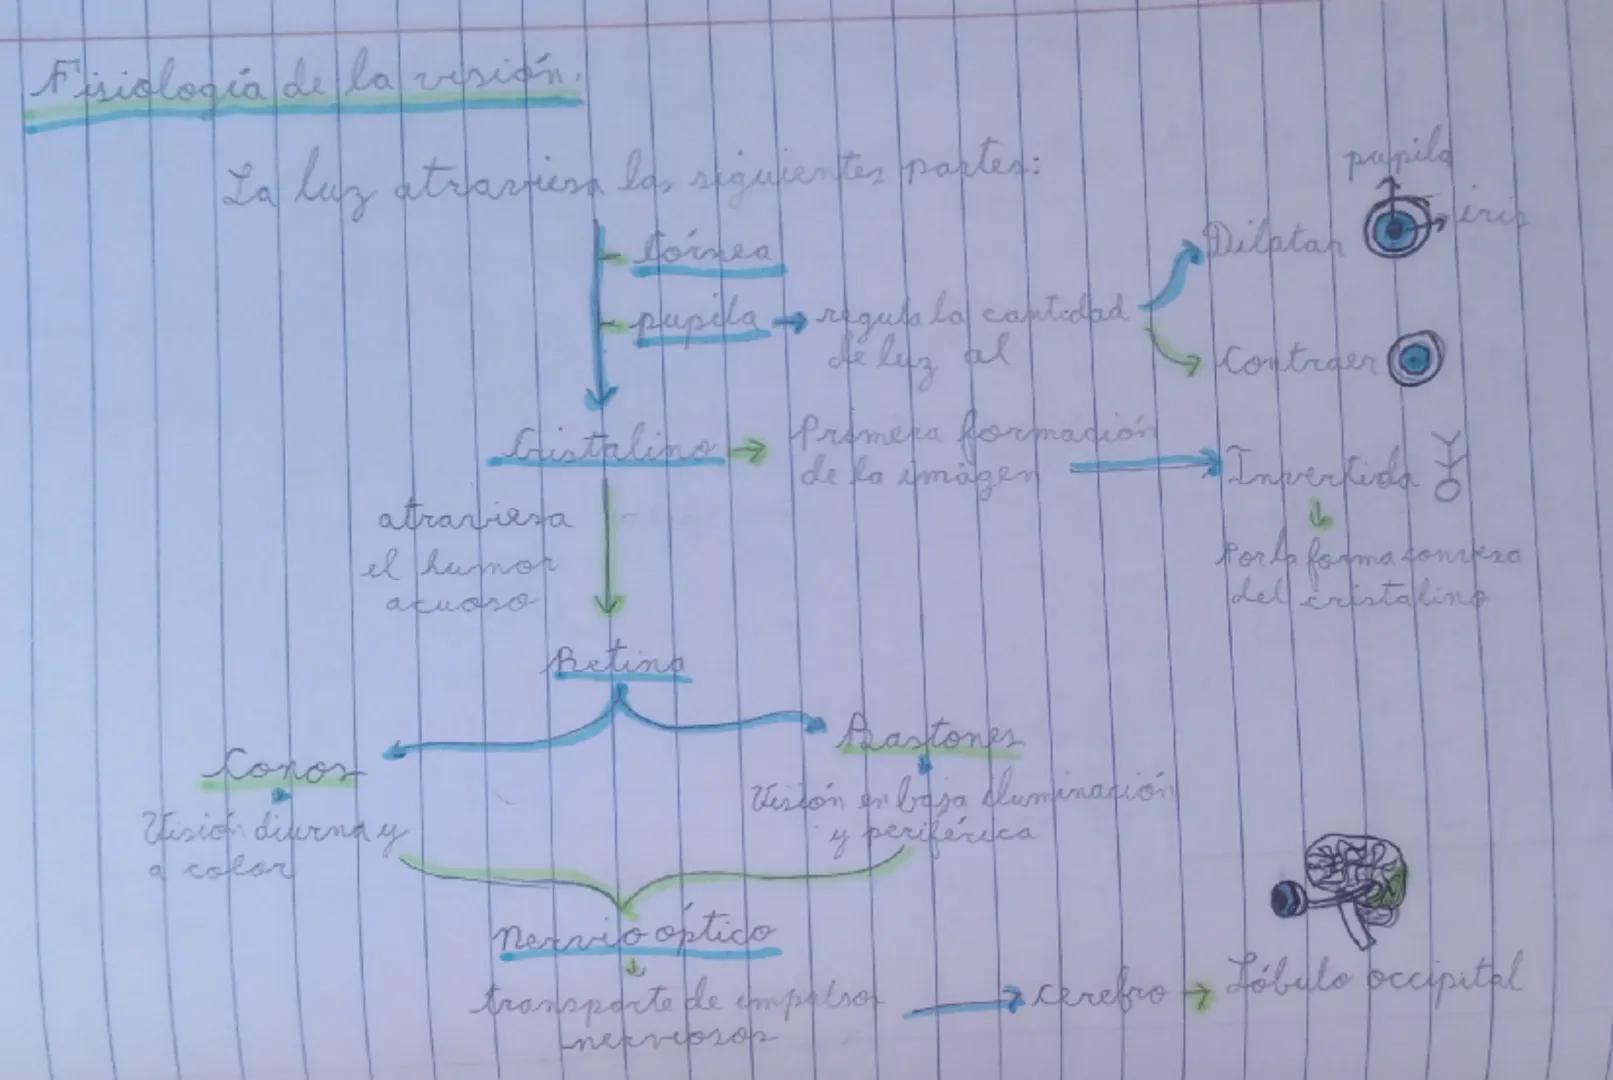 Fisiología de la visión.
La luz atraviesa las siguientes partes:
Córnea
pupila → regula la cantidad
de luz al
Dilatar
pupila
iris
Contraer
Cristalino → Primera formación
de la imágen
Invertida
Por la forma convexa
del cristalino
atraviesa
el humor
acuoso
Retina
Conos
Visión diurna y
a color
Bastones
Visión en baja iluminación
y periférica
Nervio óptico
transporte de impulsos
nerviosos
→ cerebro → Lóbulo occipital